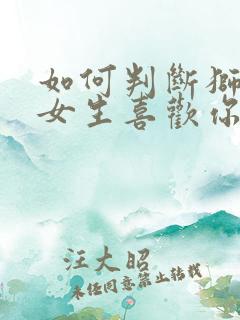 如何判斷獅
女生喜歡你
汪大昭
未任同意禁止转载